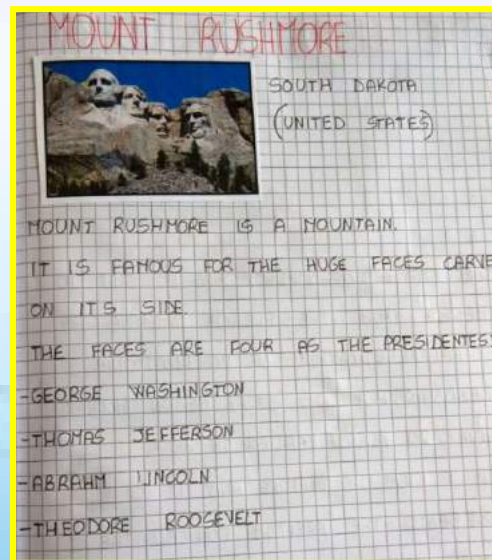 MOUNT RUSHMORE
SOUTH DAKOTA
(UNITED STATES)
MOUNT RUSHMORE IS A MOUNTAIN.
IT IS FAMOUS FOR THE HUGE FACES CARVE
ON ITS SIDE.
THE FACES ARE FOUR AS THE PRESIDENTES:
-GEORGE WASHINGTON
-THOMAS JEFFERSON
-ABRAHM LINCOLN
-THEODORE ROOSEVELT